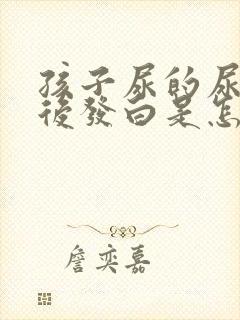 孩子尿的尿
後發白是怎
詹奕嘉